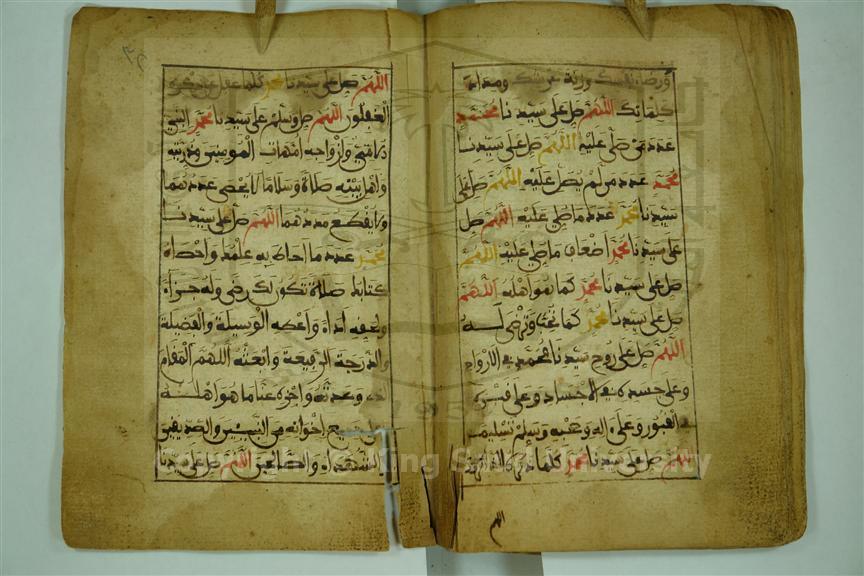 ورضاء نفسك وزنة عرشك ومداد
كلماتك اللهم صل على سيدنا محمد
عدد من صلى عليه اللهم صل على سيدنا
محمد عدد من لم يصل عليه اللهم صل على
سيدنا محمد عدد ما صلي عليه اللهم صل
على سيدنا محمد أضعاف ما صلي عليه اللهم
صل على سيدنا محمد كما هو أهله اللهم
صل على سيدنا محمد كما تحب وترضى له
اللهم صل على روح سيدنا محمد في الارواح
وعلى جسده في الاجساد وعلى قبره
في القبور وعلى اله وصحبه وسلم تسليما
اللهم صل على سيدنا محمد كلما ذكره الذاكرون
اللهم
اللهم صل على سيدنا محمد كلما غفل عن ذكره
الغفلون اللهم صل وسلم على سيدنا محمد النبي
الامي وازواجه امهات المومنين وذريته
واهل بيته صلاة وسلاما لا يحصى عددهما
ولا يقطع مددهما اللهم صل على سيدنا
محمد عدد ما احاط به علمك واحصاه
كتابك صلاة تكون لك رضى وله جزاء
ولحقه اداء واعطه الوسيلة والفضيلة
والدرجة الرفيعة وابعثه اللهم المقام
الذي وعدته واجزه عنا ما هو اهله
وعلى جميع إخوانه من النبيين والصديقين
والشهداء والصالحين اللهم صل على سيدنا
Copyright © King Saud University
1957